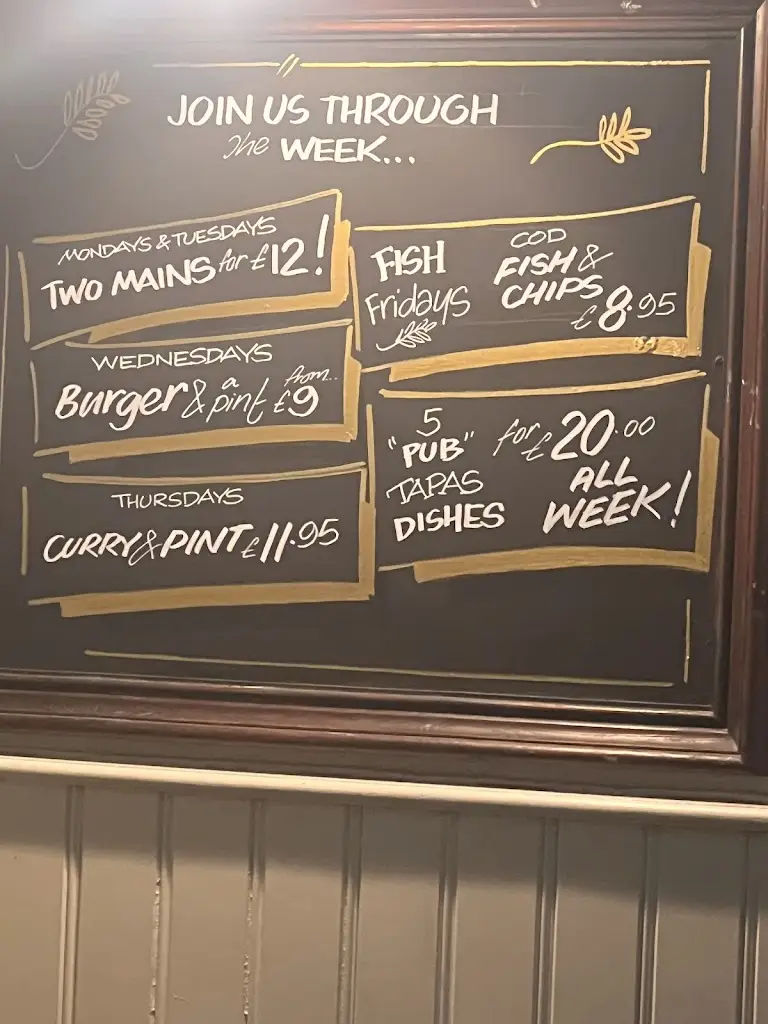 JOIN US THROUGH
the WEEK...
MONDAYS & TUESDAYS
TWO MAINS for £12!
WEDNESDAYS
Burger & a pint from.. £9
THURSDAYS
CURRY & PINT £11.95
FISH
Fridays
COD
FISH &
CHIPS
£8.95
5
"PUB"
TAPAS
DISHES
for £20.00
ALL
WEEK!